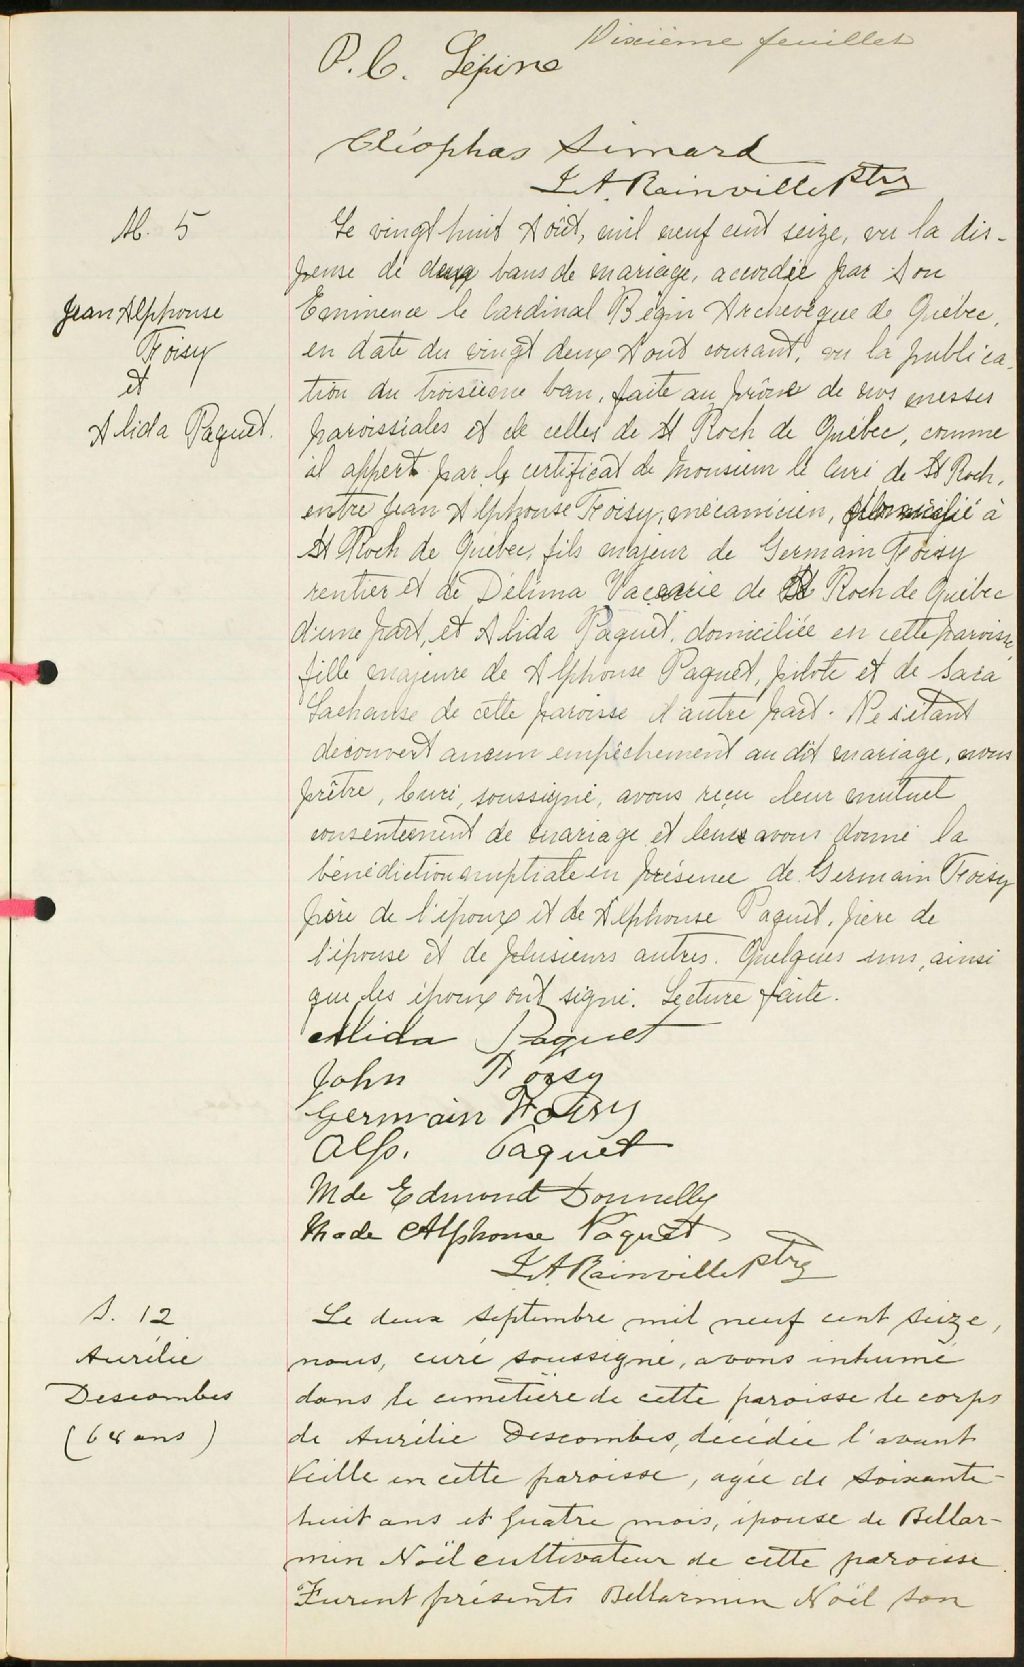 Dixième feuillet
P. C. Lépine
Cléophas Simard
J. A. Rainville Ptre
M. 5
Jean Alphonse
Foisy
et
Alida Paquet.
Le vingt huit Août, mil neuf cent seize, vu la dis-
pense de deux bans de mariage, accordée par Son
Eminence le Cardinal Bégin Archevêque de Québec,
en date du vingt deux Août courant, vu la publica-
tion du troisième ban, faite au prône de nos messes
paroissiales et de celles de St Roch de Québec, comme
il appert par le certificat de Monsieur le Curé de St Roch,
entre Jean Alphonse Foisy, mécanicien, domicilié à
St Roch de Québec, fils majeur de Germain Foisy
rentier et de Délima Vacerie de St Roch de Québec
d'une part, et Alida Paquet, domiciliée en cette paroisse,
fille majeure de Alphonse Paquet, pilote et de Sara
Lachanse de cette paroisse d'autre part. Ne s'étant
découvert aucun empêchement au dit mariage, nous
prêtre, Curé, soussigné, avons reçu leur mutuel
consentement de mariage et leur avons donné la
bénédiction nuptiale en présence de Germain Foisy
père de l'époux et de Alphonse Paquet, père de
l'épouse et de plusieurs autres. Quelques uns, ainsi
que les époux ont signé. Lecture faite.
Alida Paquet
John Foisy
Germain Foisy
Alp. Paquet
Mde Edmond Donnelly
Made Alphonse Paquet
J. A. Rainville Ptre
S. 12
Aurélie
Descombes
(68 ans)
Le deux Septembre mil neuf cent seize,
nous, curé soussigné, avons inhumé
dans le cimetière de cette paroisse le corps
de Aurélie Descombes, décédée l'avant
veille en cette paroisse, agée de soixante-
huit ans et quatre mois, épouse de Bellar-
min Noël cultivateur de cette paroisse.
Furent présents Bellarmin Noël son